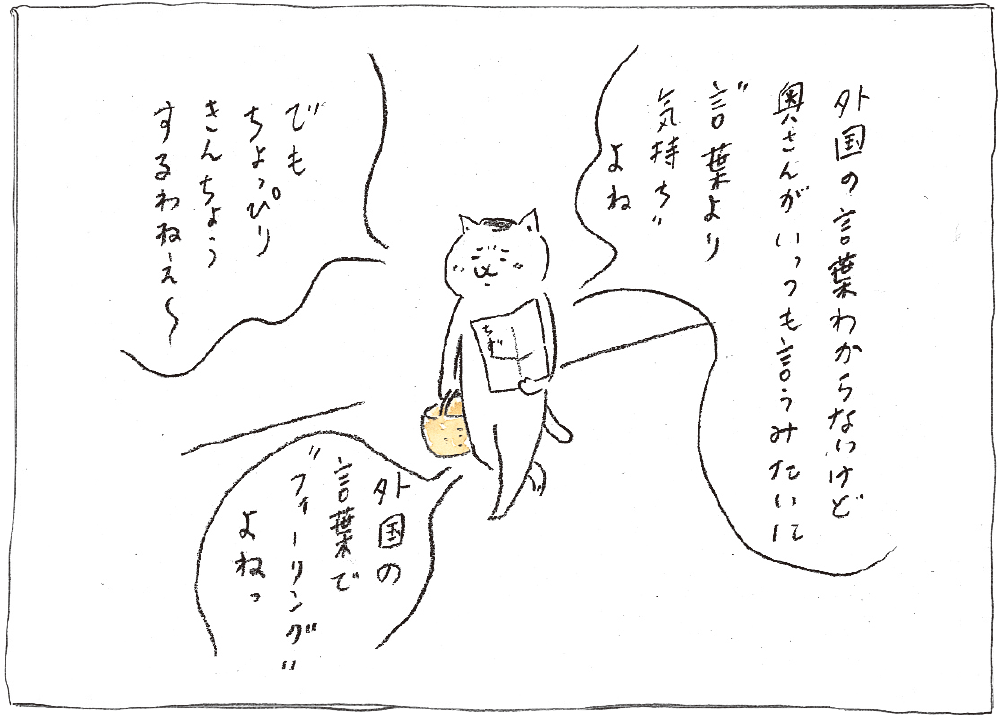 外国の言葉わからないけど
奥さんがいつも言うみたいに
"言葉より
気持ち"
よね
でも
ちょっぴり
きんちょう
するわねぇ〜
ちず
外国の
言葉で
"フィーリング"
よねっ